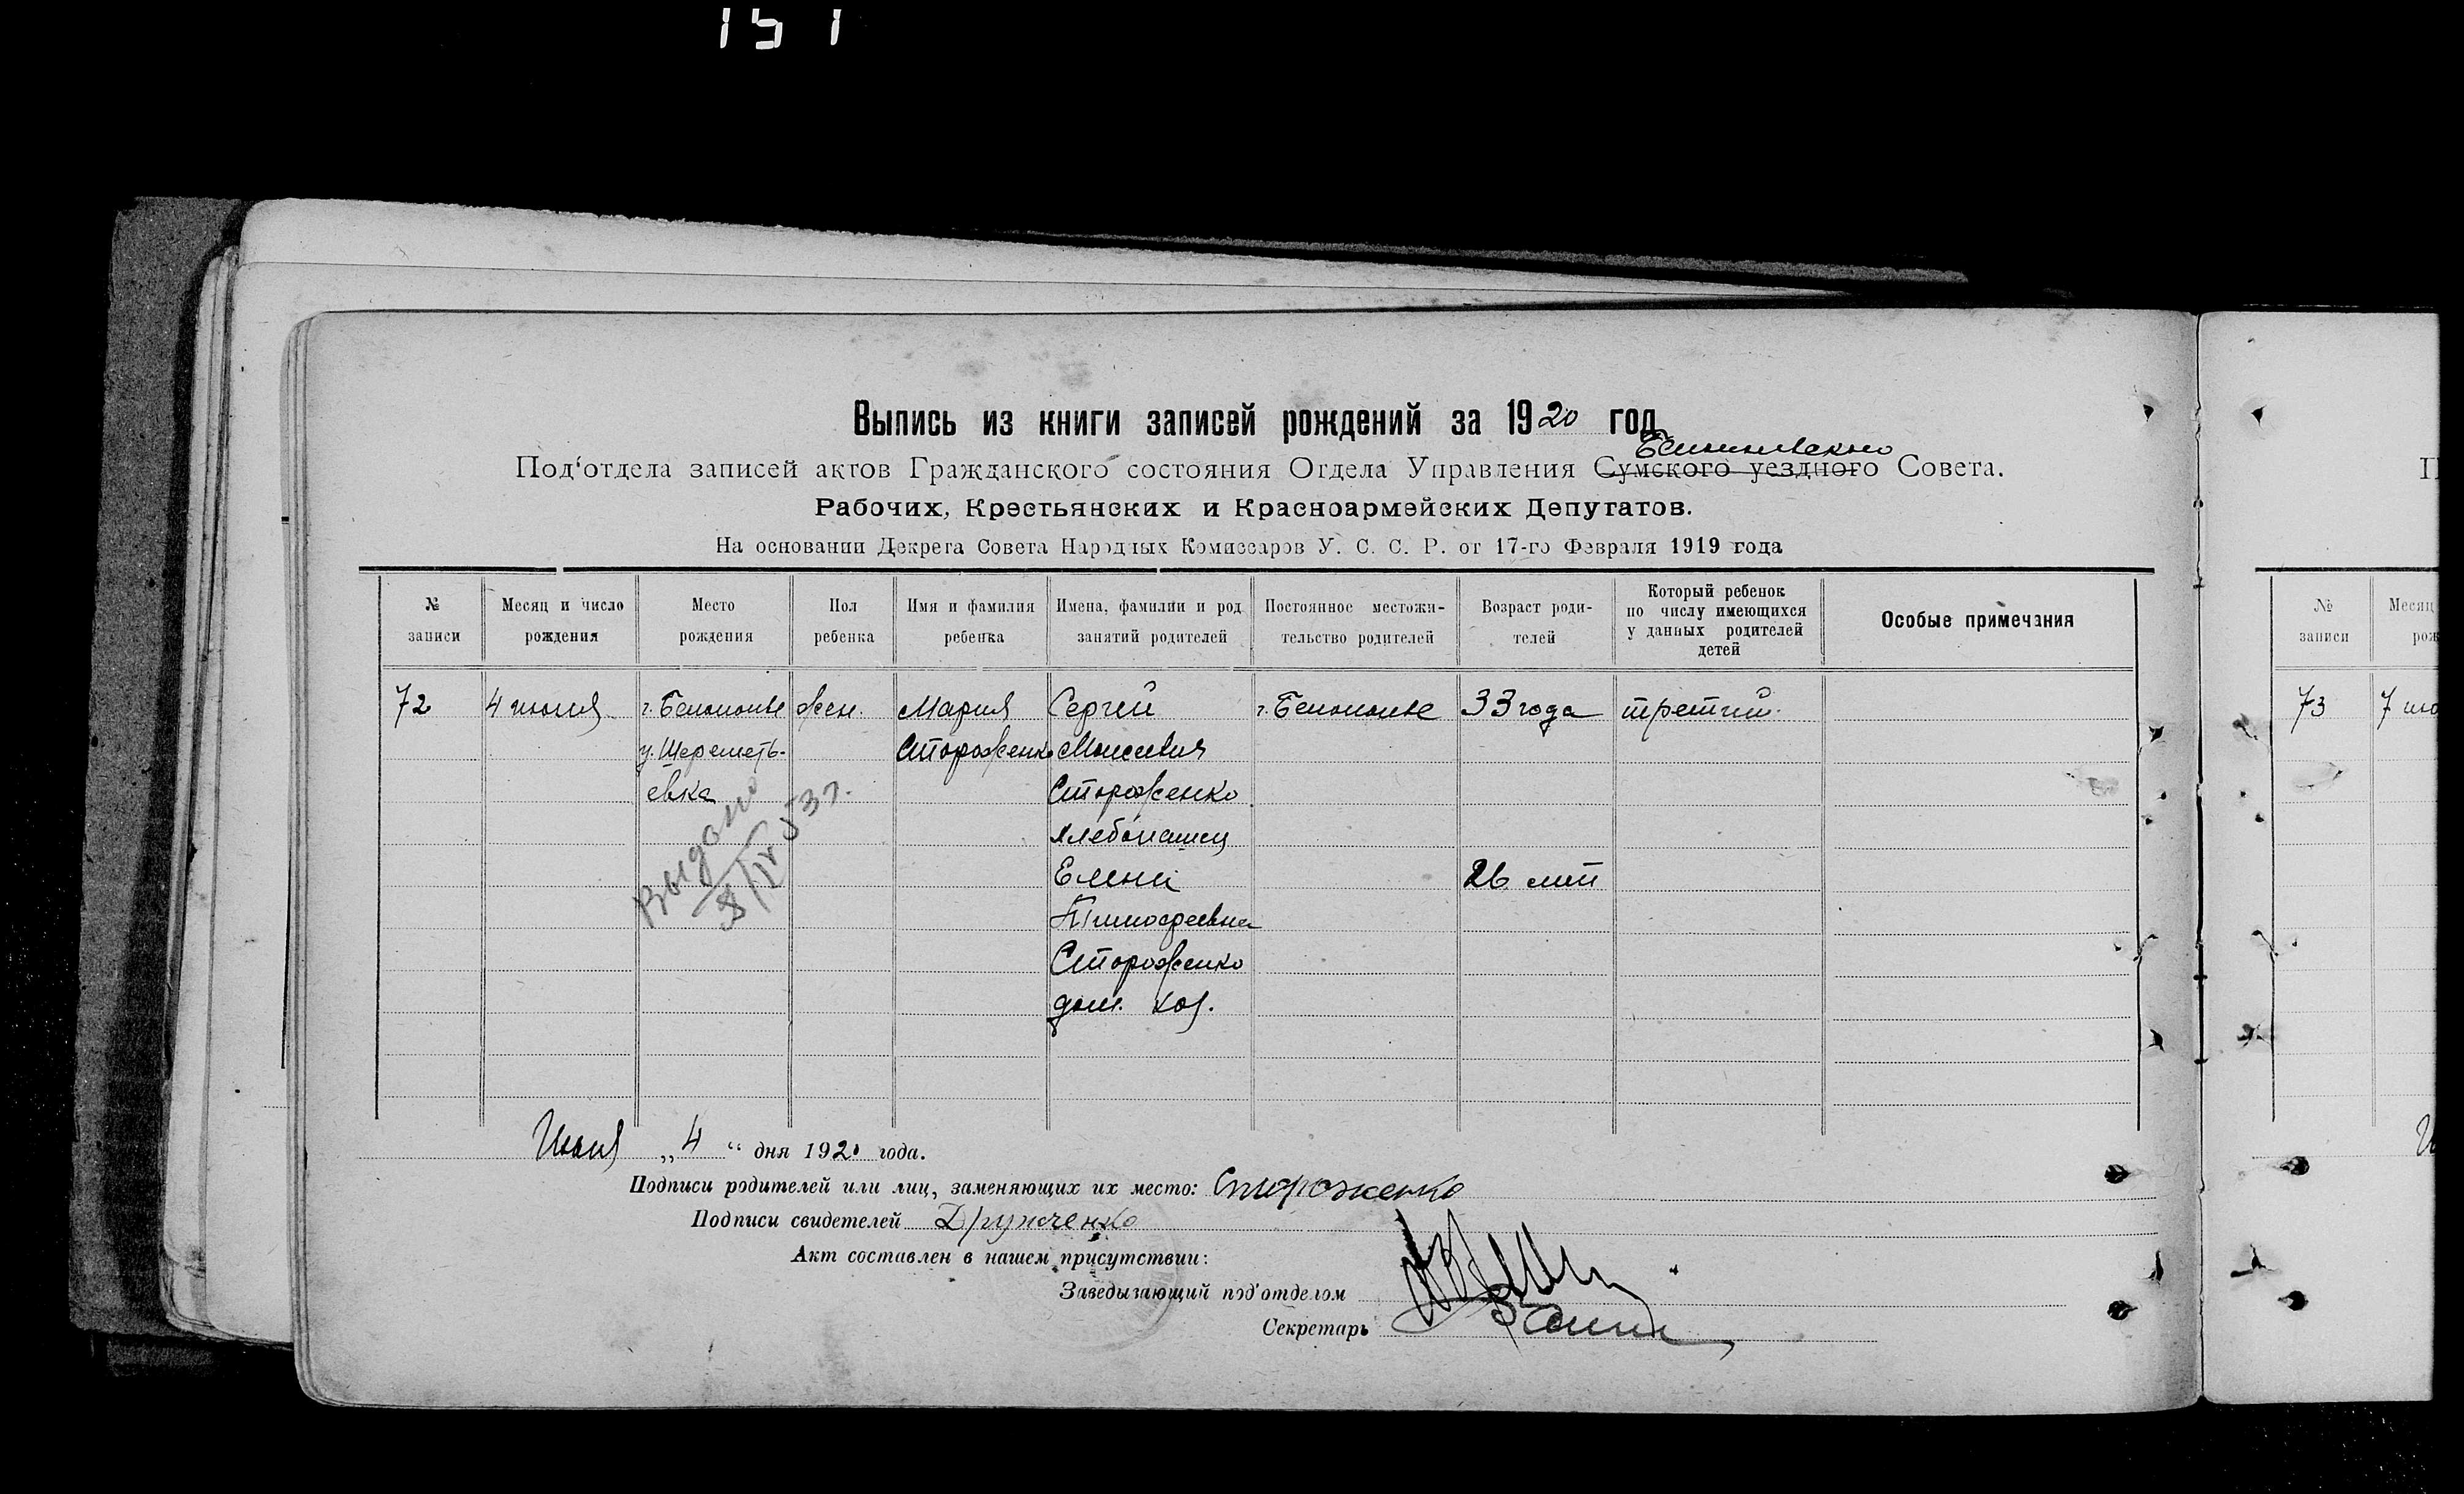 151
Выпись из книги записей рождений за 1920 год
Белопольского
Под‘отдела записей актов Гражданского состояния Отдела Управления Сумского уездного Совета.
Рабочих, Крестьянских и Красноармейских Депутатов.
На основании Декрета Совета Народных Комиссаров У. С. С. Р. от 17-го Февраля 1919 года
№ записи
Месяц и число рождения
Место рождения
Пол ребенка
Имя и фамилия ребенка
Имена, фамилии и род занятий родителей
Постоянное местожительство родителей
Возраст родителей
Который ребенок по числу имеющихся у данных родителей детей
Особые примечания
72 4 июля г. Белополье жен. Мария Сергей г. Белополье 33 года третий
у. Шереметь- Стороженко Моисеевич
евка Стороженко
хлебопашец
Елена 26 лет
Тимофеевна
Стороженко
дом. хоз.
Выдано
8/IV 53 г.
Июля „4“ дня 1920 года.
Подписи родителей или лиц, заменяющих их место: Стороженко
Подписи свидетелей
Акт составлен в нашем присутствии:
Заведывающий под‘отделом
Секретарь
№ записи
Месяц
73 7